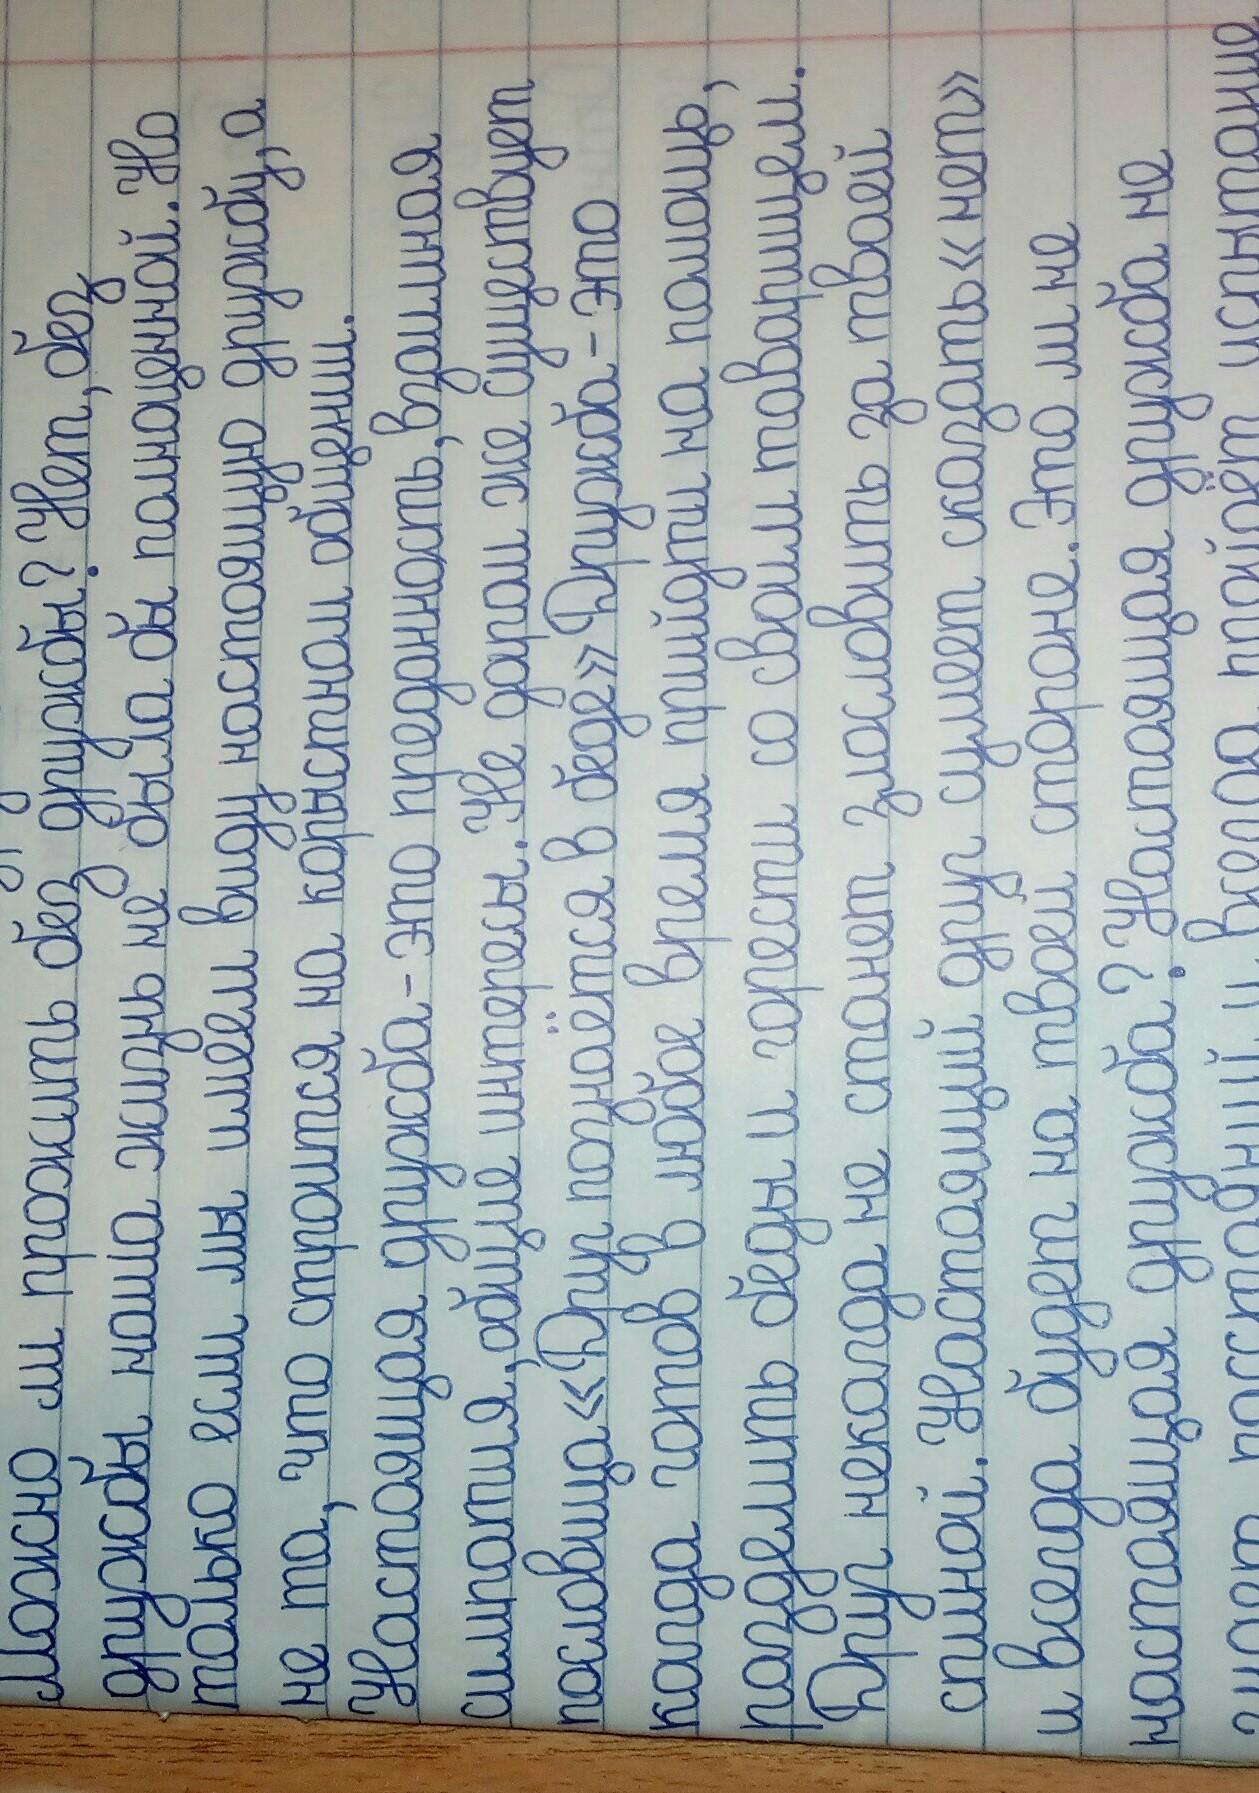 Можно ли прожить без дружбы? Нет, без
дружбы наша жизнь не была бы полноценной. Но
только если мы имеем виду настоящую дружбу, а
не та, что строится на корыстном общении.
Настоящая дружба - это преданность, взаимная
симпатия, общие интересы. Не даром же существует
пословица «Друг познаётся в беде» Дружба - это
когда готов в любое время прийдти на помощь,
разделить беды и горести со своим товарищем.
Друг некогда не станет злословить за твоей
спиной. Настоящий друг сумеет сказать «нет»
и всегда будет на твоей стороне. Это ли не
настоящая дружба? Настоящая дружба не
знает расстояний и всегда пройдёт испытание